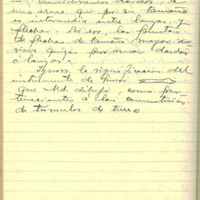 dardos a
una arma que por su tamaño
es intermedia entre lanzas y
flechas. Por eso, las puntas
de flechas de tamaño mayor ser-
vían quizás para armar dardos
o lanzas.
Ignoro la significación del
instrumento de hueso
que Ud. dibujó, como per-
tenecientes a los cementerios
de túmulos de tierra